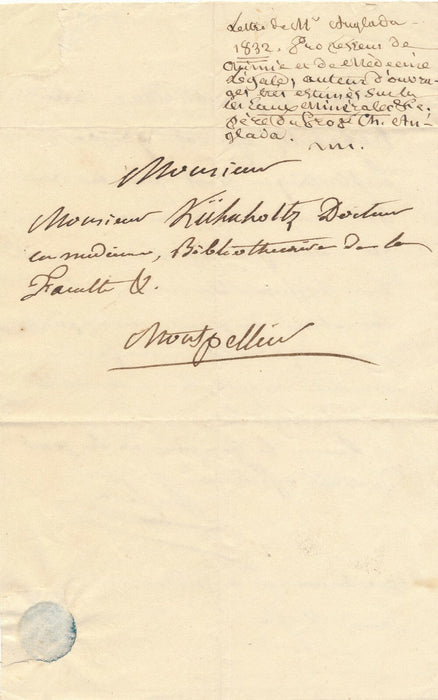 Lettre de Mr Anglada
1832. Professeur de
Chimie et de Médecine
Légale, auteur d'ouvra-
ges très estimés sur la
les Eaux Minérales &c.
père du Prof. Ch. An-
glada.
Monsieur
Monsieur Kühnholtz Docteur
en médecine, Bibliothécaire de la
Faculté &.
Montpellier